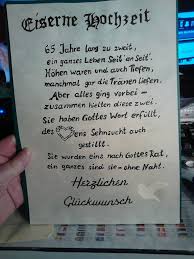 Eiserne Hochzeit
65 Jahre lang zu zweit,
ein ganzes Leben Seit' an Seit'.
Höhen waren und auch Tiefen,
manchmal gar die Tränen liefen.
Aber alles ging vorbei –
zusammen hielten diese zwei.
Sie haben Gottes Wort erfüllt,
des ens Sehnsucht auch
gestillt.
Sie wurden eins nach Gottes Rat,
ein ganzes sind sie – ohne Naht.
Herzlichen
Glückwunsch